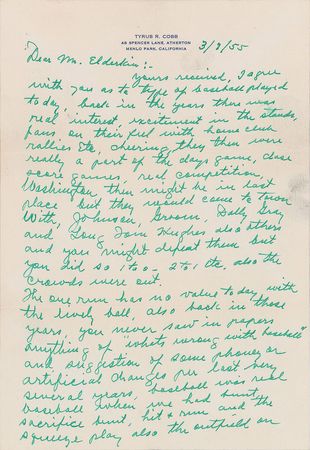 TYRUS R. COBB
48 SPENCER LANE, ATHERTON
MENLO PARK, CALIFORNIA
3/9/55
Dear Mr. Elderkin:-
Yours received, I agree
with you as to type of baseball played
today, back in the years there was
real interest, excitement in the stands,
fans on their feet with home club
rallies etc, cheering, they then were
really a part of the days game, close
score games, real competition,
Washington then might be in last
place but they would come to town
with, Johnson, Groom, Dolly Gray
and Long Tom Hughes also others
and you might defeat them but
you did so 1 to 0 - 2 to 1 etc. also the
crowds were out.
The one run has no value today with
the lively ball, also back in those
years, you never saw in papers
anything of "whats wrong with baseball"
and suggestion of some phoney or
artificial changes per last very
several years, baseball was real
baseball when we had bunt,
sacrifice bunt, hit & run and the
squeeze play also the outfield on